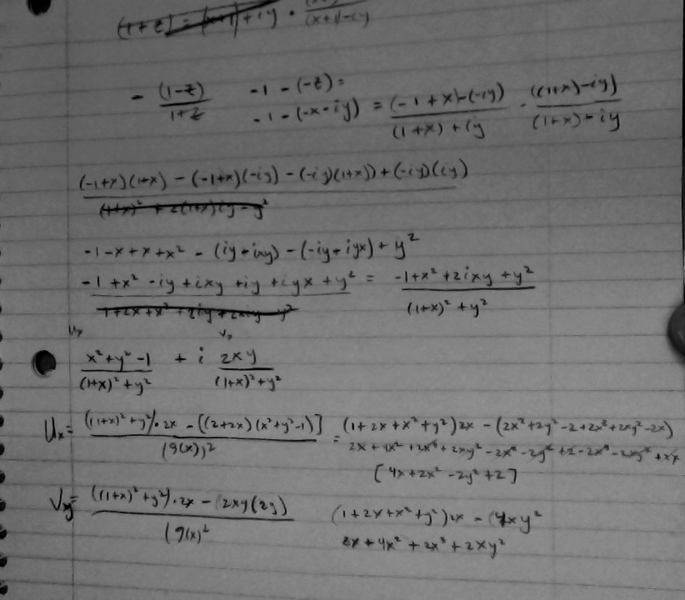 (1+z) = (x+1)+iy · (x+1)-iy
- (1-z)/(1+z)   -1 - (-z) =
-1 - (-x-iy) = ((-1+x)-(-iy))/((1+x)+iy) · ((1+x)-iy)/((1+x)-iy)
(-1+x)(1+x) - (-1+x)(-iy) - (-iy)(1+x)) + (-iy)(iy)
(1+x)² + 2(1+x)iy - y²
-1-x+x+x² - (iy-ixy) - (-iy-iyx) + y²
(-1+x² -iy + ixy + iy + iyx + y²)/(1+2x+x²+2iy+2xiy-y²) = (-1+x²+2ixy+y²)/((1+x)²+y²)
(x²+y²-1)/((1+x)²+y²) + i 2xy/((1+x)²+y²)
Ux = (((1+x)²+y²)·2x - [(2+2x)(x²+y²-1)])/(g(x))² = (1+2x+x²+y²)2x - (2x²+2y²-2+2x³+2xy²-2x)
2x+4x²+2x³+2xy²-2x²-2y²+2-2x³-2xy²+2x
[4x+2x²-2y²+2]
Vy = (((1+x)²+y²)·2x - (2xy(2y))/(g(x)²   (1+2x+x²+y²)2x - (4xy²
2x+4x²+2x³+2xy²